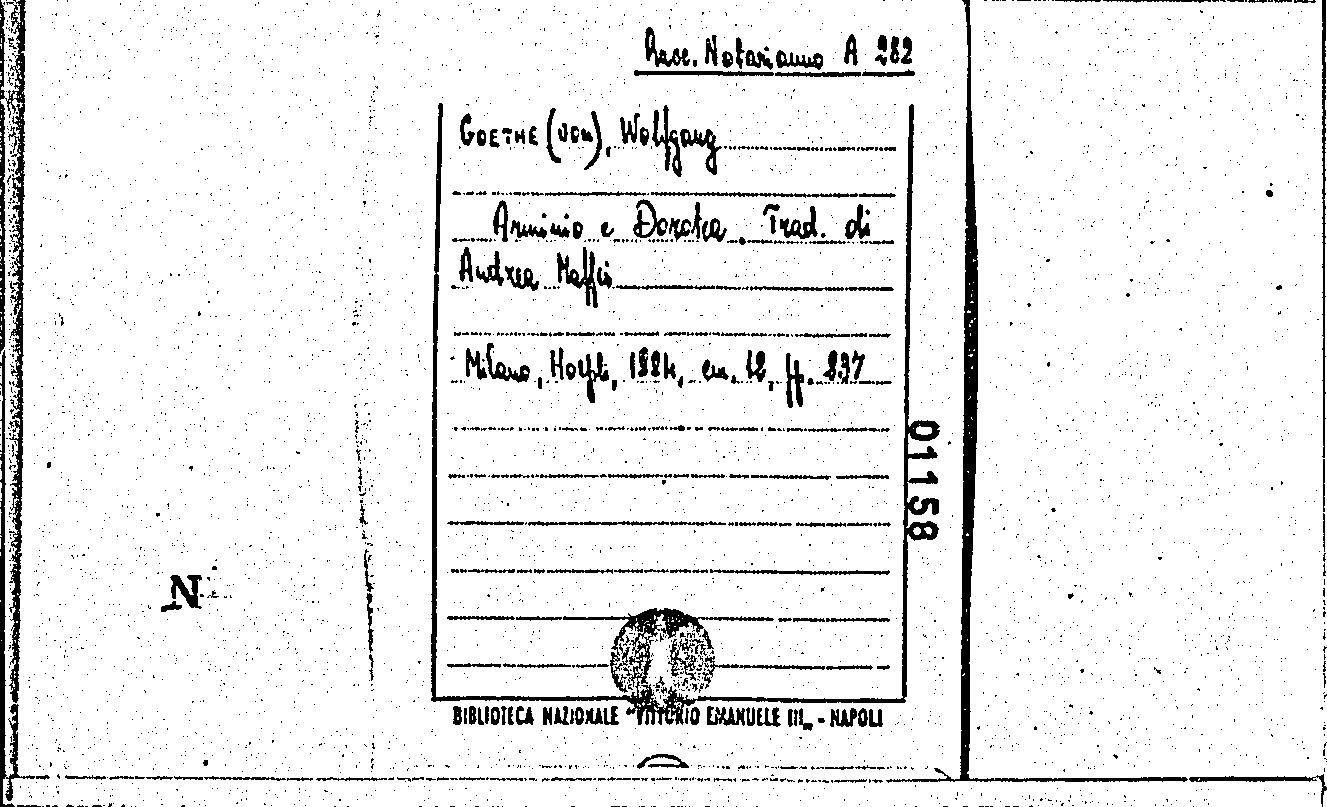 Racc. Notarianno A 282
GOETHE (von), Wolfgang
Arminio e Dorotea. Trad. di
Andrea Maffei
Milano, Hoepli, 1884, cm. 12, pp. 237
01158
N
BIBLIOTECA NAZIONALE "VITTORIO EMANUELE III„ - NAPOLI